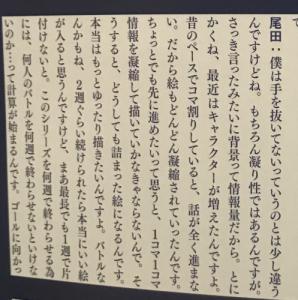 尾田：僕は手を抜いてないっていうのとは少し違う
んですけどね。もちろん凝り性ではあるんですが。
さっき言ったみたいに背景って情報量だから。とに
かくね、最近はキャラクターが増えたんですよ。
昔のペースでコマ割りしていると、話が全く進まな
い。だから絵もどんどん凝縮されていったんです。
ちょっとでも先に進めたいって思うと、1コマ1コマ
情報を凝縮して描いていかなきゃならないんで、そ
うすると、どうしても詰まった絵になるんです。
本当はもっとゆったり描きたいんですよ。バトルな
んかもね、2週ぐらい続けられたら本当にいい絵
が入ると思うんですけど、まあ最長でも1週で片
付けないと。このシリーズを何週で終わらせる為
には、何人のバトルを何週で終わらせないといけな
いのか…って計算が始まるんです。ゴールに向かっ